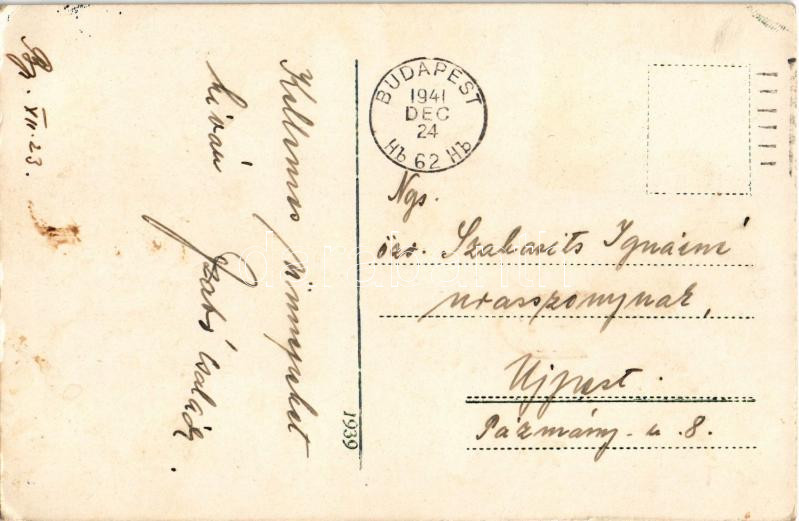 Bp. XII. 23.
Kellemes ünnepeket
kiván
Szabó Család.
1939
BUDAPEST
1941
DEC
24
Hb 62 Hb
Ngs.
özv. Szabasits Ignácné
urasszonynak,
Ujpest.
Pázmány - u. 8.